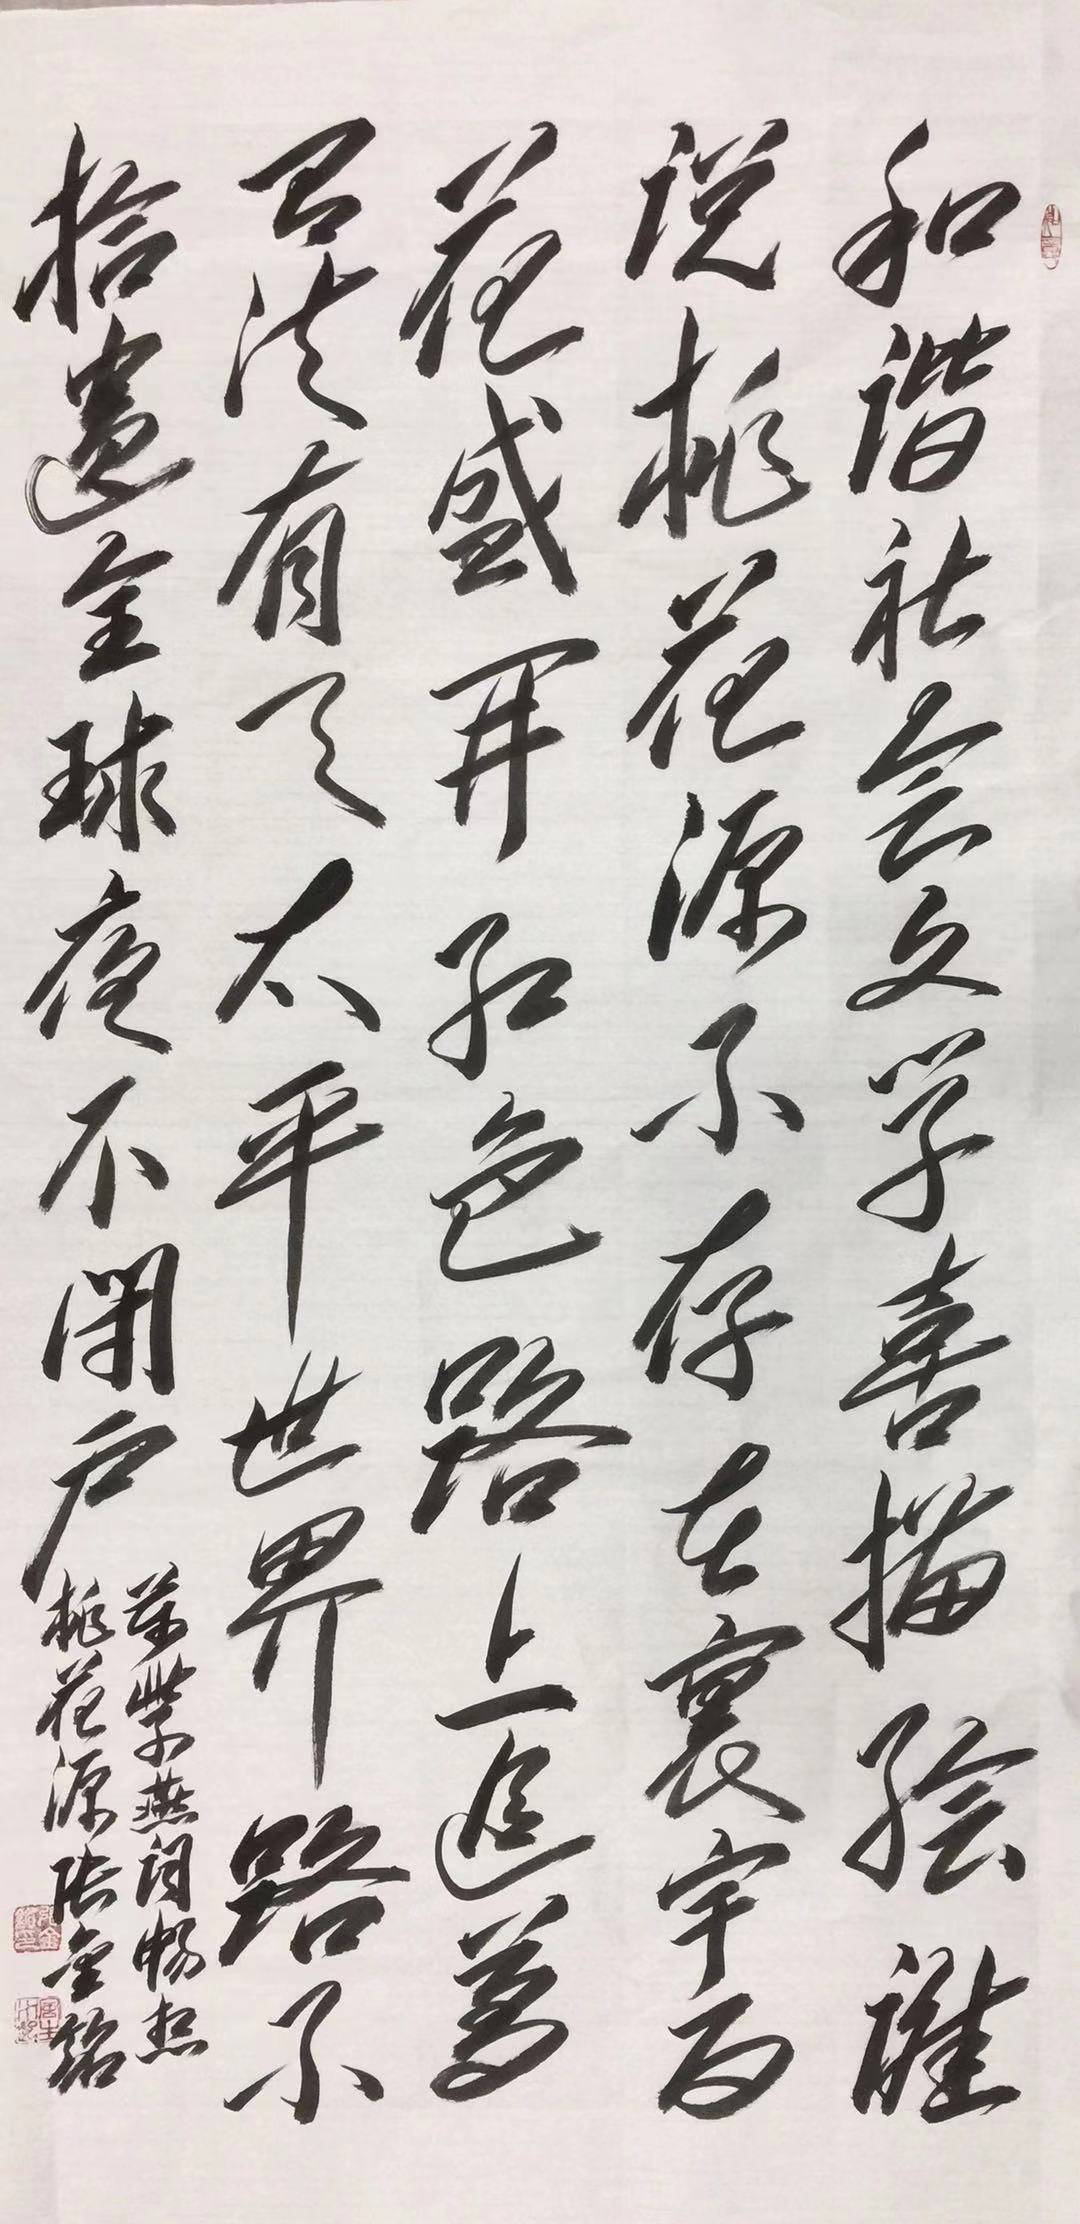 和谐社会文学喜描绘谁
说桃花源不存在寰宇百
花盛开红色路上追梦
召法有了太平世界路不
拾遗全球夜不闭户
紫燕词畅想
桃花源张金铭